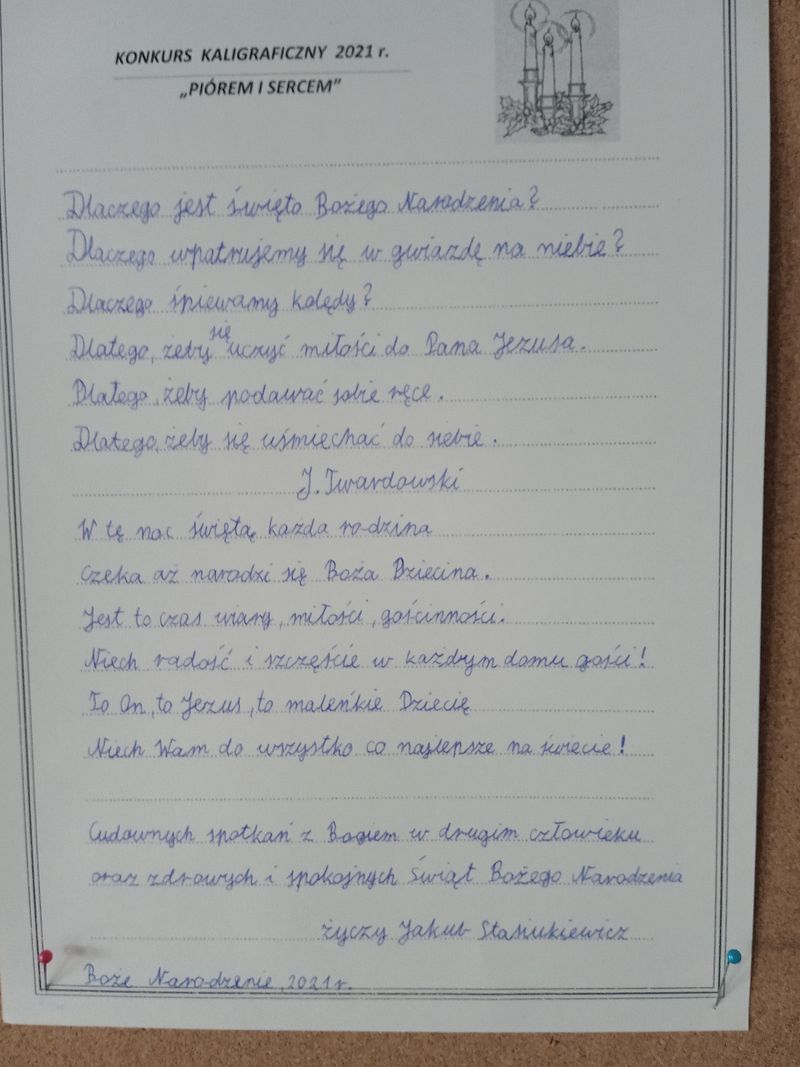 KONKURS KALIGRAFICZNY 2021 r.
„PIÓREM I SERCEM”
Dlaczego jest święto Bożego Narodzenia?
Dlaczego wpatrujemy się w gwiazdę na niebie?
Dlaczego śpiewamy kolędy?
Dlatego, żeby się uczyć miłości do Pana Jezusa.
Dlatego, żeby podawać sobie ręce.
Dlatego, żeby się uśmiechać do siebie.
J. Twardowski
W tę noc świętą każda rodzina
Czeka aż narodzi się Boża Dziecina.
Jest to czas wiary, miłości, gościnności.
Niech radość i szczęście w każdym domu gości!
To On, to Jezus, to maleńkie Dziecię
Niech Wam da wszystko co najlepsze na świecie!
Cudownych spotkań z Bogiem w drugim człowieku
oraz zdrowych i spokojnych Świąt Bożego Narodzenia
życzy Jakub Stasiukiewicz
Boże Narodzenie, 2021 r.